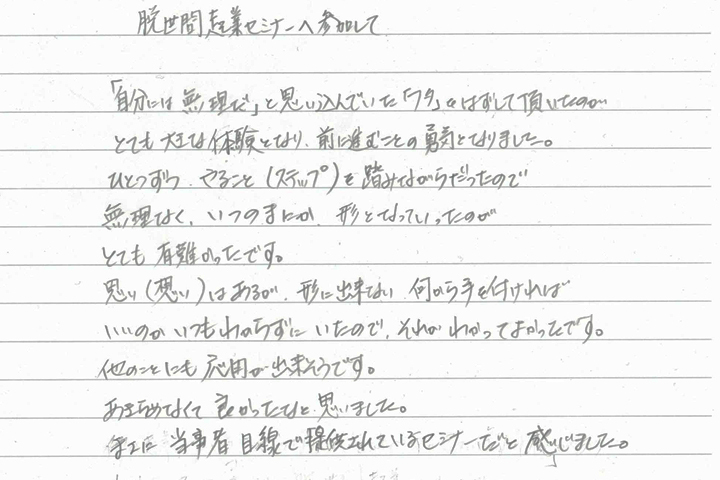 脱世間起業セミナーへ参加して
「自分には無理だ」と思い込んでいた「フタ」をはずして頂いたのが
とても大きな体験となり、前に進むことの勇気となりました。
ひとつずつ、やること(ステップ)を踏みながらだったので
無理なく、いつのまにか、形となっていったのが
とても有難かったです。
思い(想い)はあるが、形に出来ない、何から手を付ければ
いいのかいつもわからずにいたので、それがわかってよかったです。
他のことにも応用が出来そうです。
あきらめなくて良かったなと思いました。
まさに当事者目線で提供されているセミナーだと感じました。